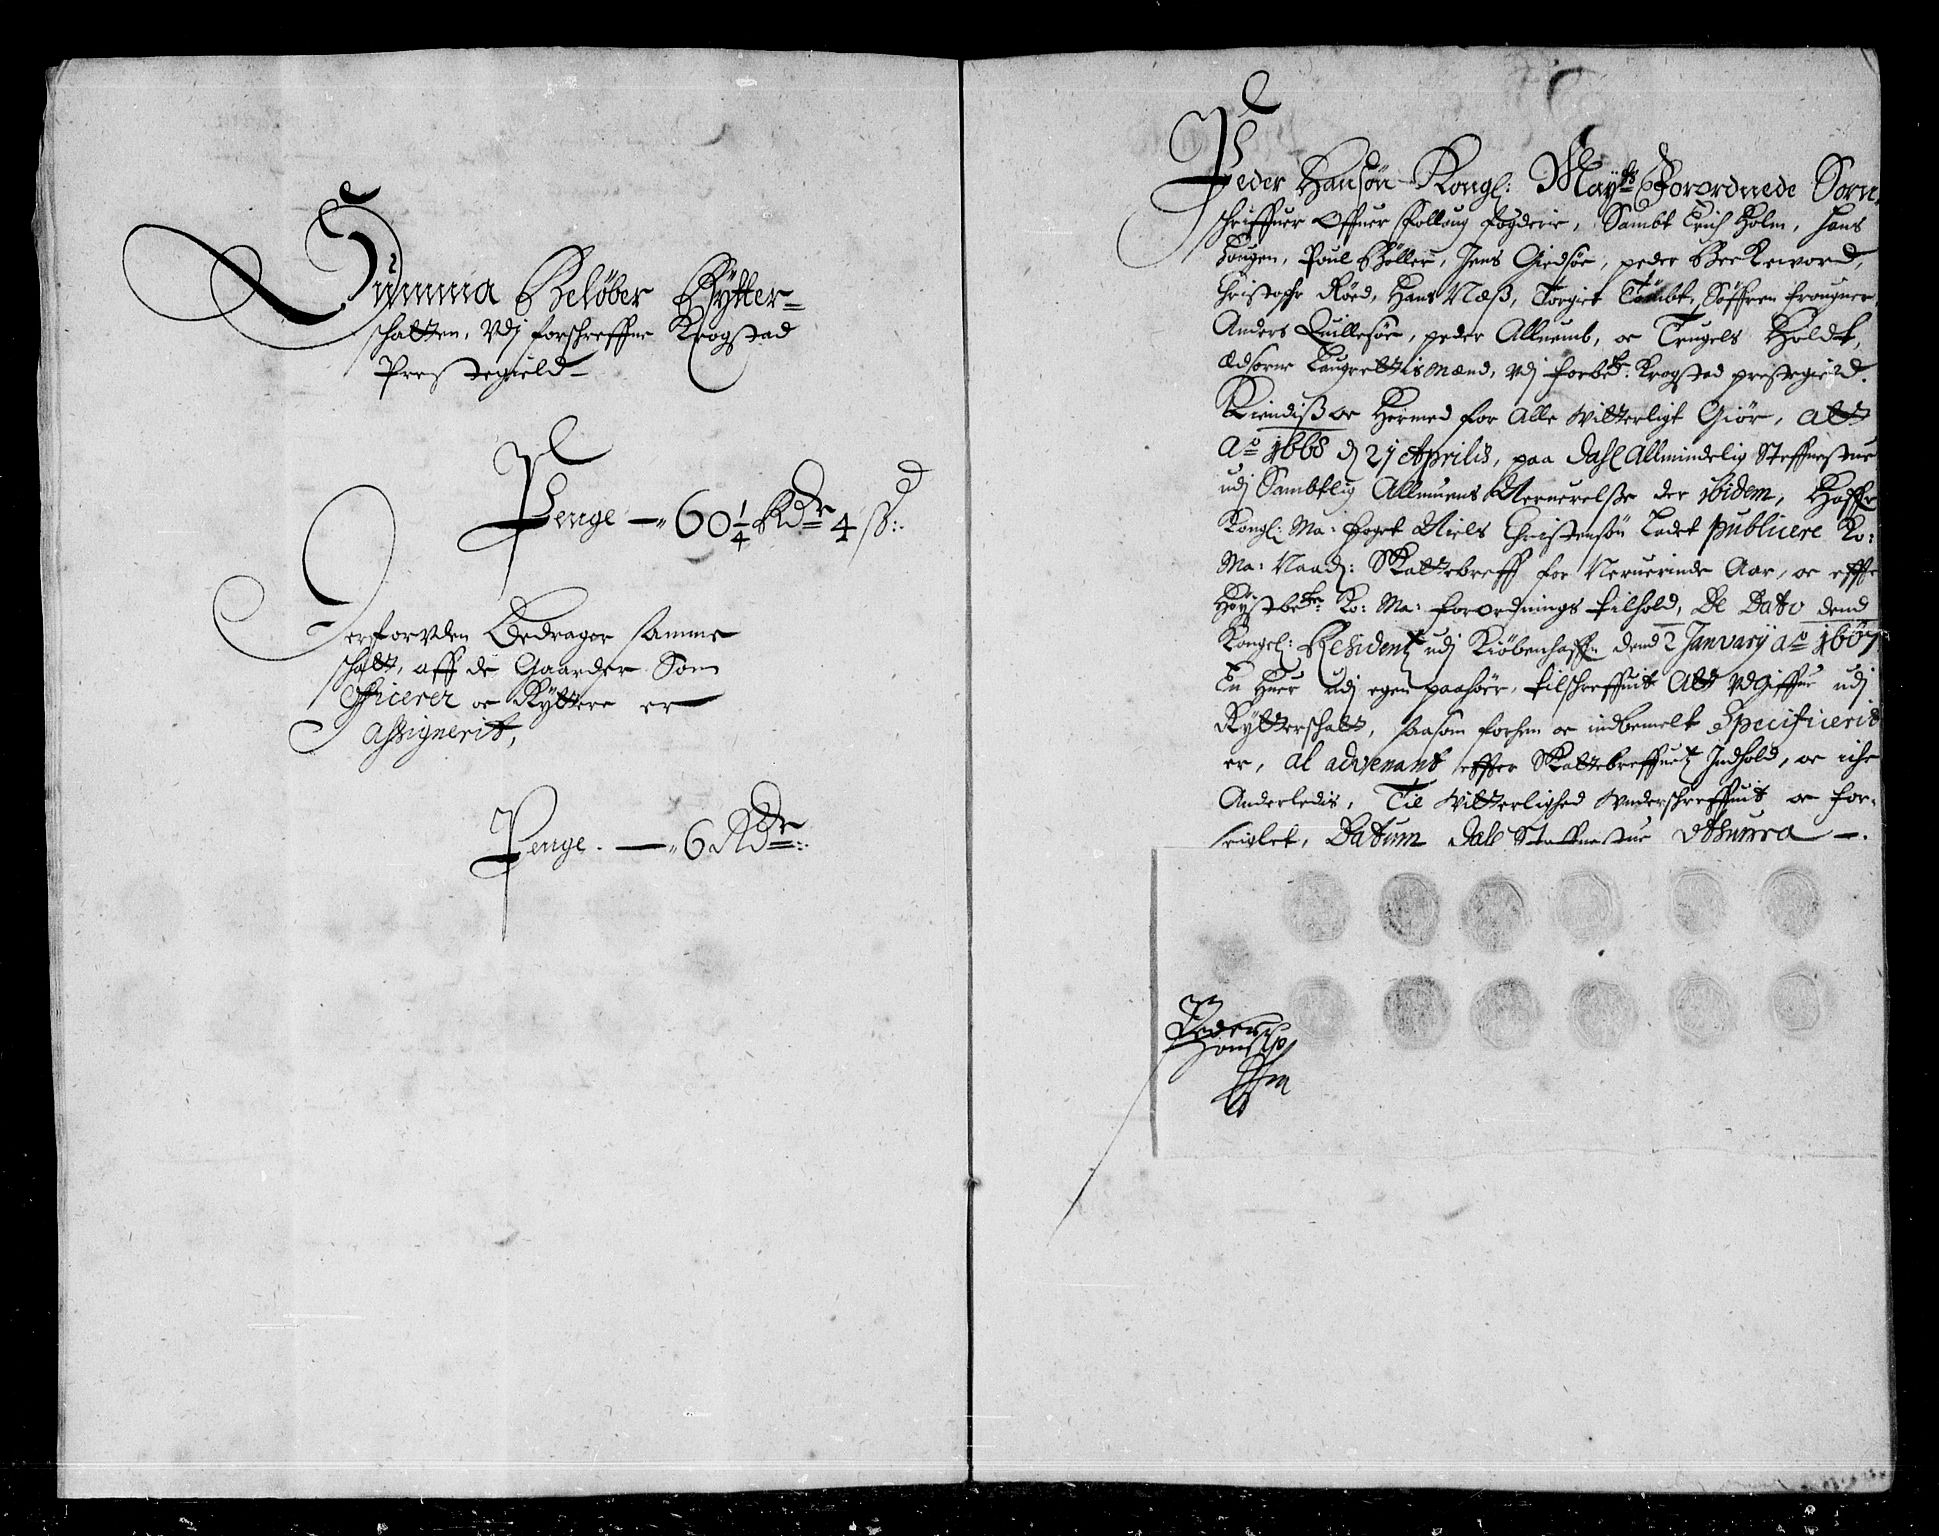 Summa Beløber Rytter-
schatten, Vdj forschreffne Krogstad
Prestegield
Penge — 60 1/4 Rdr 4 ß:
Herforvden Bedrager samme
schatt, aff de Gaarder Som
Officerer oc Ryttere er
Assignerit,
Penge. — 6 Rdr:
Peder Hansøn Kongl: Mayts Forordnede Sorn-
schriffuer Offuer Folloug fogderie, Sambt Erich Holm, Hans
Hougen, Poul Bøller, Jens Giedsøe, peder Berkeword,
Christoffr Røed, Hans Næß, Torgier Tombt, Søffren frougner,
Anders Quillesøe, peder Allnemb, oc Trugels Holdt,
Ædsorne Laugrettis mænd, Vdj forbedt: Krogstad prestegield.
Kiendiß oc Hermed for Alle witterligt Giør, att
Ao 1668 d 21 Aprilis, paa Dahl Allmindelig Steffnestue
udj Sambtlig Allmuens Neruerelße der ibidem, Haffr
Kongl: Ma: foget Niels Christensøn Ladet publicere Ko:
Ma: Naad: Skattebreff for Neruerinde Aar, oc effter
Høystbete Ko: Ma: forordnings tilhold, De Dato dend
Kongel: Residentz udj Kiøbenhaffn dend 2 January ao 1667
En Huer udj egen paahør, tilschreffuit Att Vdgiffue udj
Rytterschatt, saasom forhen oc indbemelt Specificerit
er, al advenant effter Skattebreffuetz Indhold, oc iche
Anderledis, Til Witterlighed Vnderschreffuit oc for-
seiglet, Datum Dall Steffnestue Ut Supra —.
Peder
Hansøn